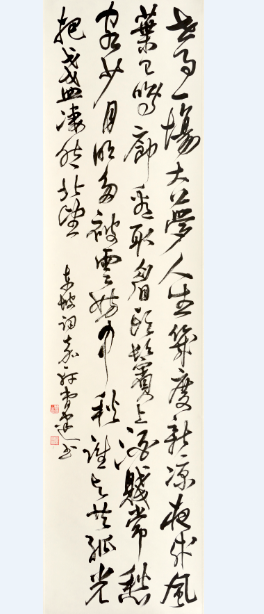 世事一場大夢人生幾度新涼夜来風
葉已鳴廊看取眉頭鬢上酒賤常愁
客少月明多被雲妨中秋誰与共孤光
把盞凄然北望
東坡詞